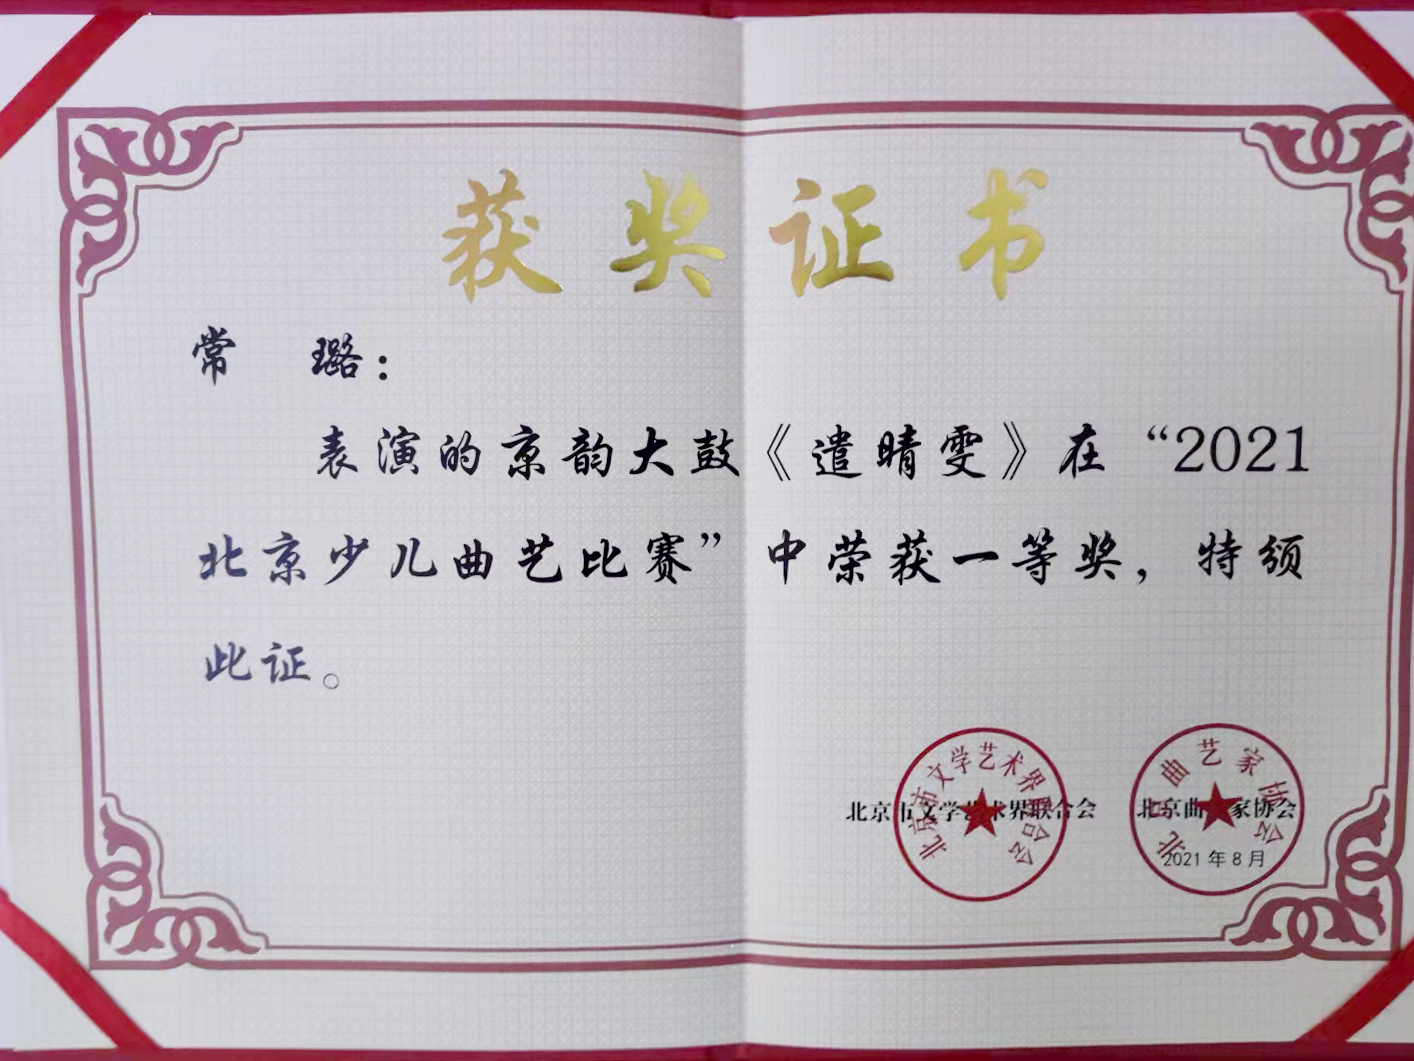 获奖证书
常 璐：
表演的京韵大鼓《遣晴雯》在“2021
北京少儿曲艺比赛”中荣获一等奖，特颁
此证。
北京市文学艺术界联合会 北京曲艺家协会
2021 年 8 月
北京市文学艺术界联合会
北京曲艺家协会